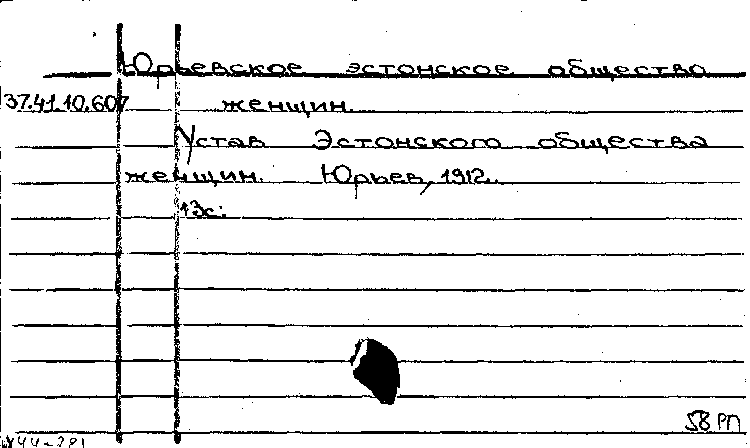 Юрьевское эстонское общество
37.41.10.607 женщин.
Устав Эстонского общества
женщин. Юрьев, 1912.
13с.
58 РП